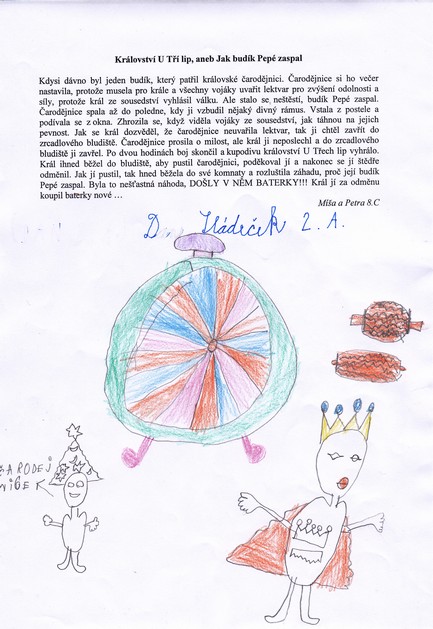 Království U Tří lip, aneb Jak budík Pepé zaspal
Kdysi dávno byl jeden budík, který patřil královské čarodějnici. Čarodějnice si ho večer
nastavila, protože musela pro krále a všechny vojáky uvařit lektvar pro zvýšení odolnosti a
síly, protože král ze sousedství vyhlásil válku. Ale stalo se neštěstí, budík Pepé zaspal.
Čarodějnice spala až do poledne, kdy ji vzbudil nějaký divný rámus. Vstala z postele a
podívala se z okna. Zhrozila se, když viděla vojáky ze sousedství, jak táhnou na jejich
pevnost. Jak se král dozvěděl, že čarodějnice neuvařila lektvar, tak ji chtěl zavřít do
zrcadlového bludiště. Čarodějnice prosila o milost, ale král ji neposlechl a do zrcadlového
bludiště ji zavřel. Po dvou hodinách boj skončil a kupodivu království U Třech lip vyhrálo.
Král ihned běžel do bludiště, aby pustil čarodějnici, poděkoval jí a nakonec se jí štědře
odměnil. Jak jí pustil, tak hned běžela do své komnaty a rozluštila záhadu, proč její budík
Pepé zaspal. Byla to nešťastná náhoda, DOŠLY V NĚM BATERKY!!! Král jí za odměnu
koupil baterky nové …
Míša a Petra 8.C
D. Hádeček 2. A.
ČARODEJ